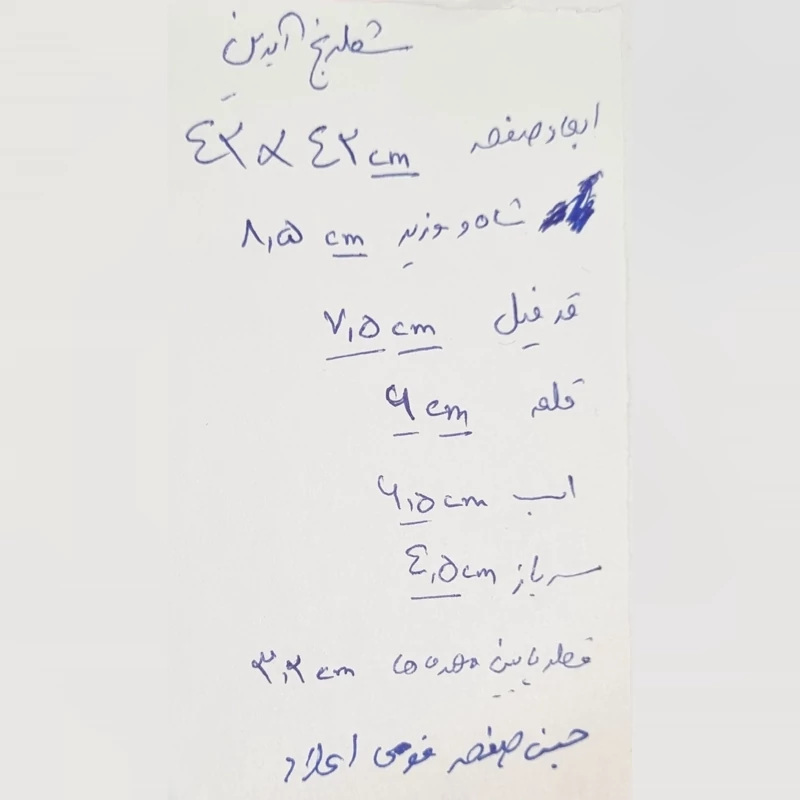 شطرنج آیدین
ابعاد صفحه ٤٢ × ٤٢ cm
شاه و وزیر ٨,۵ cm
قد فیل ٧,۵ cm
قلعه ۶ cm
اسب ۶,۵ cm
سرباز ٤,۵ cm
قطر پایین مهره ها ٣,٢ cm
جنس صفحه فومی اعلاء